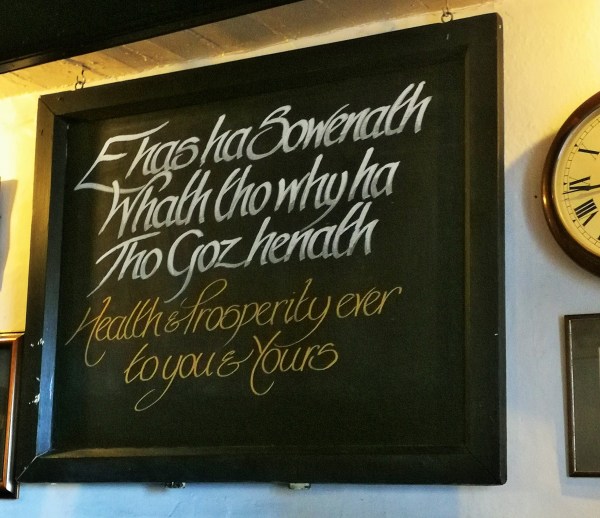 Ehas ha Sowenath
Whath tho why ha
Tho Goz henath
Health & Prosperity ever
to you & Yours